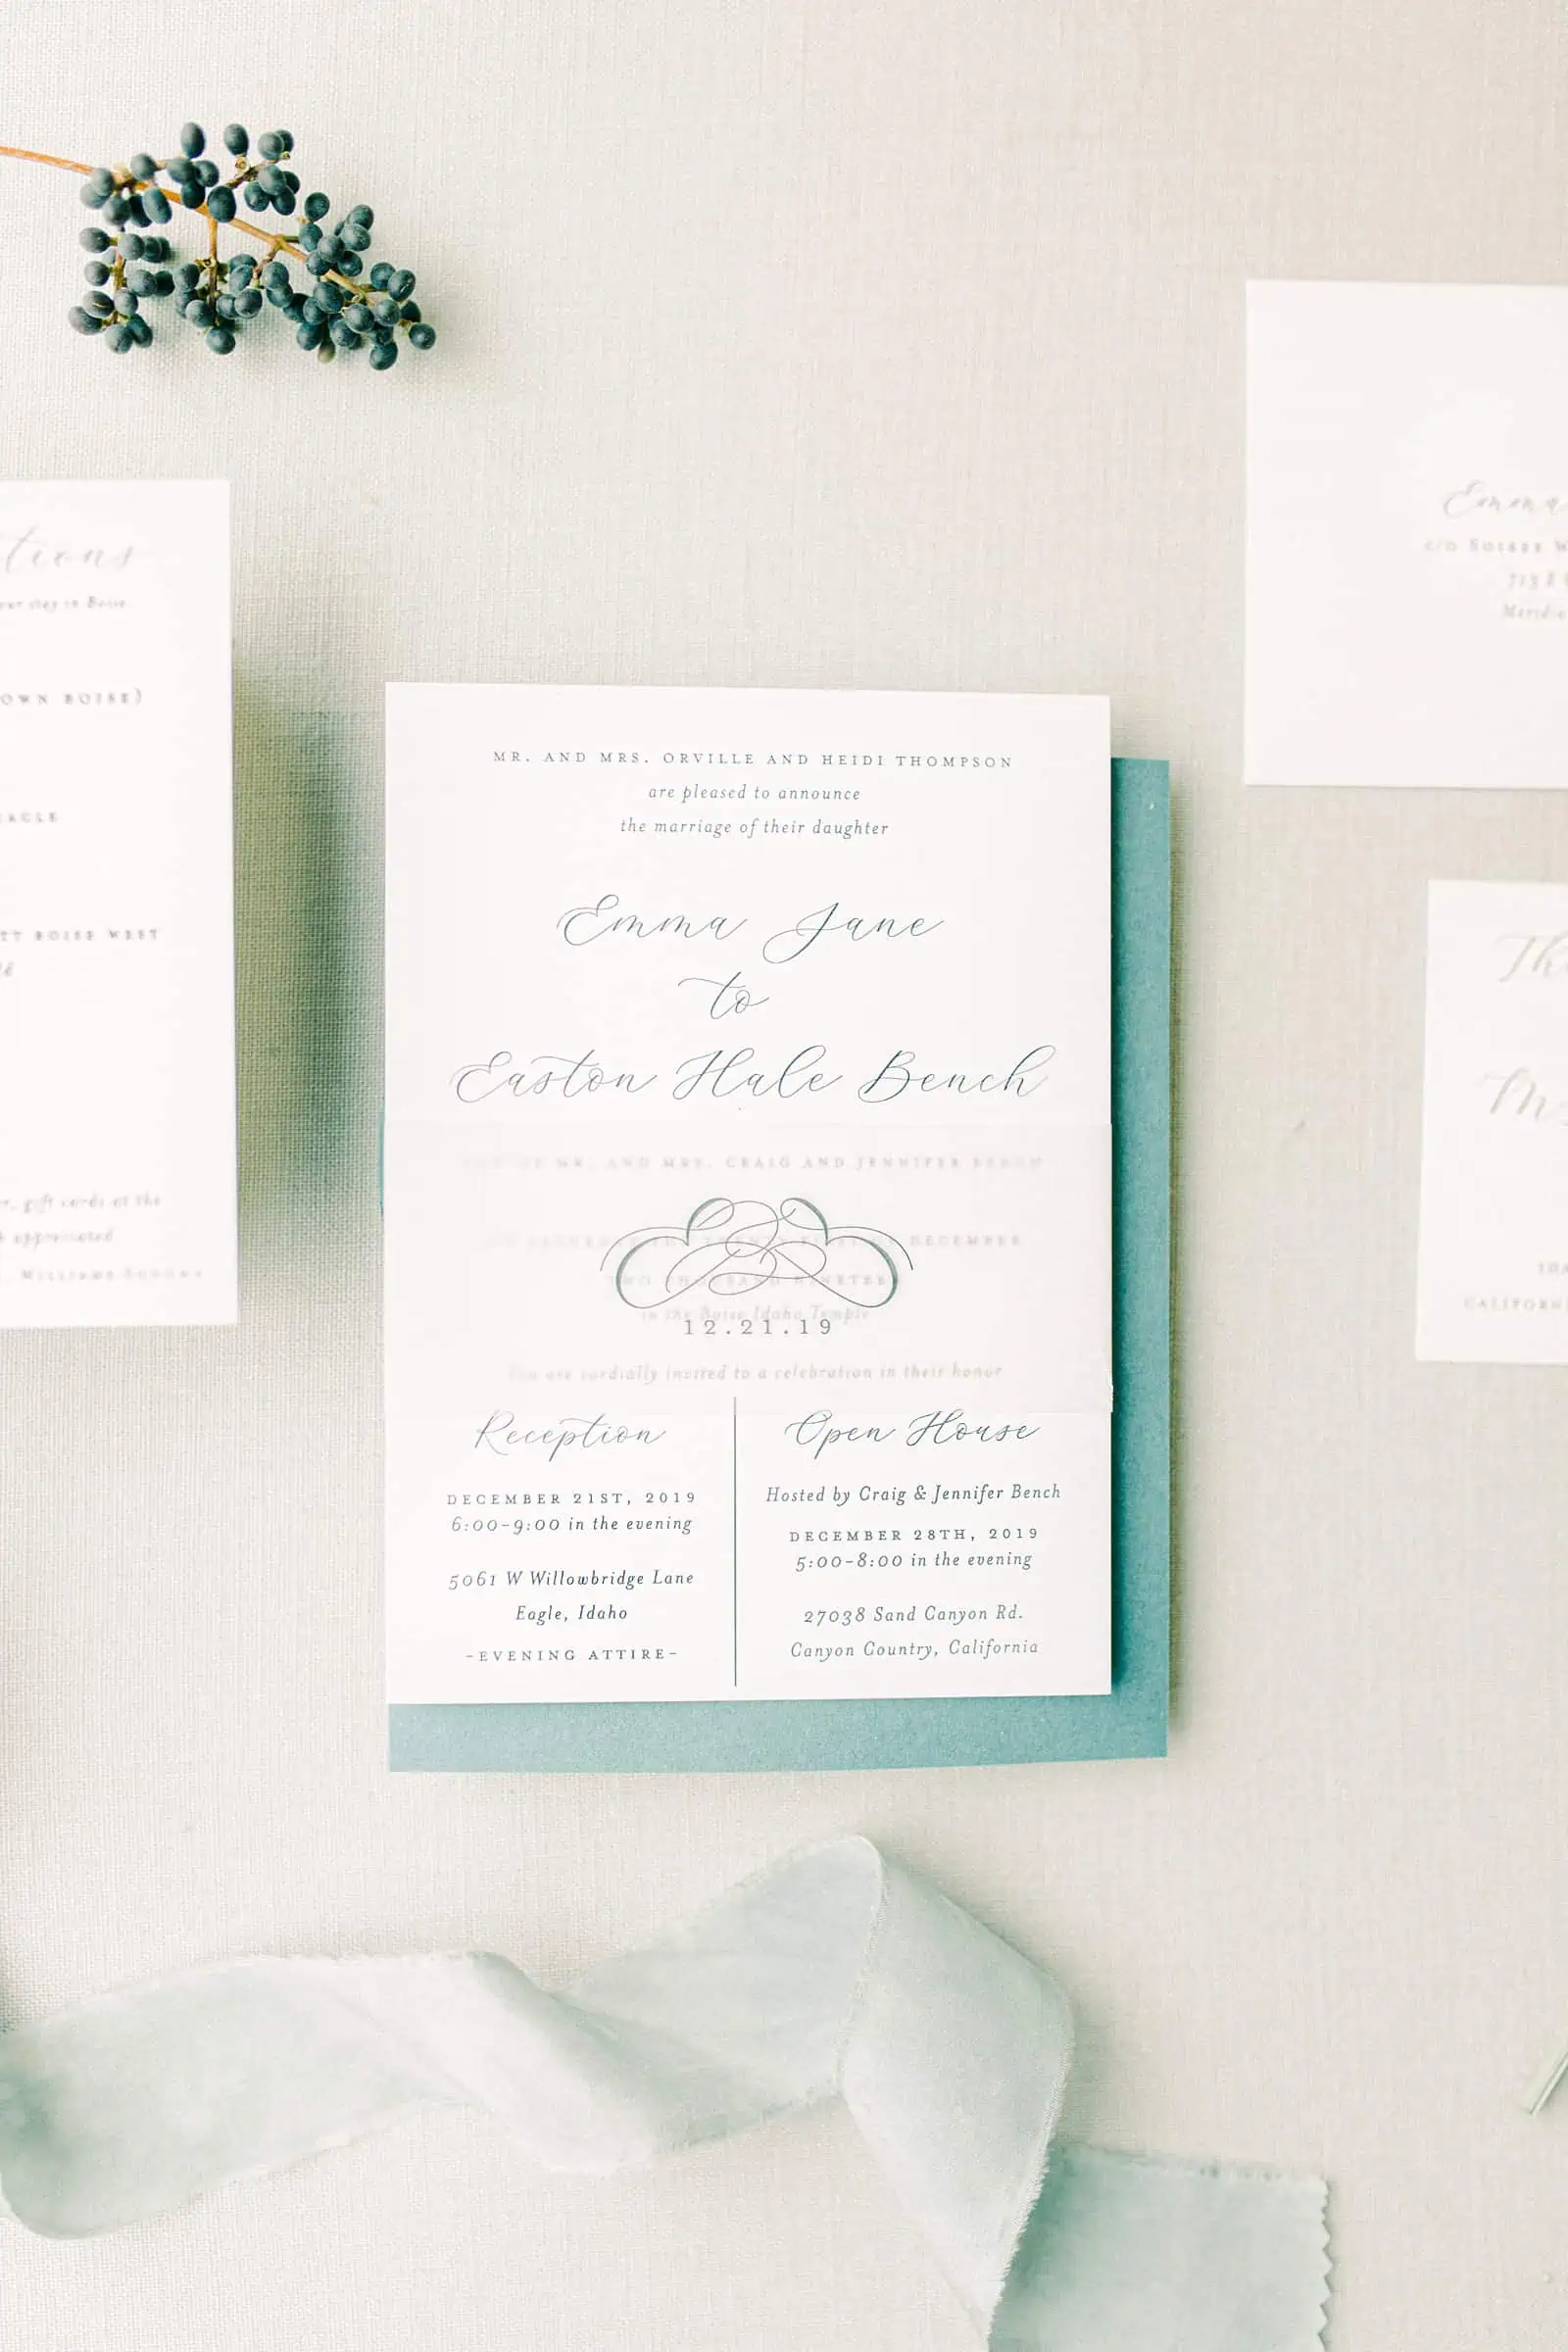 MR. AND MRS. ORVILLE AND HEIDI THOMPSON
are pleased to announce
the marriage of their daughter
Emma Jane
to
Easton Hale Bench
MR. AND MRS. CRAIG AND JENNIFER BENCH
DECEMBER
TWO THOUSAND NINETEEN
in the Boise Idaho Temple
12.21.19
You are cordially invited to a celebration in their honor
Reception
DECEMBER 21ST, 2019
6:00-9:00 in the evening
5061 W Willowbridge Lane
Eagle, Idaho
-EVENING ATTIRE-
Open House
Hosted by Craig & Jennifer Bench
DECEMBER 28TH, 2019
5:00-8:00 in the evening
27038 Sand Canyon Rd.
Canyon Country, California
tions
stay in Boise
OWN BOISE)
EAGLE
TT BOISE WEST
gift cards at the
appreciated
WILLIAMS SONOMA
Emma
c/o
713
Meridia
Th
IDA
CALIFORN